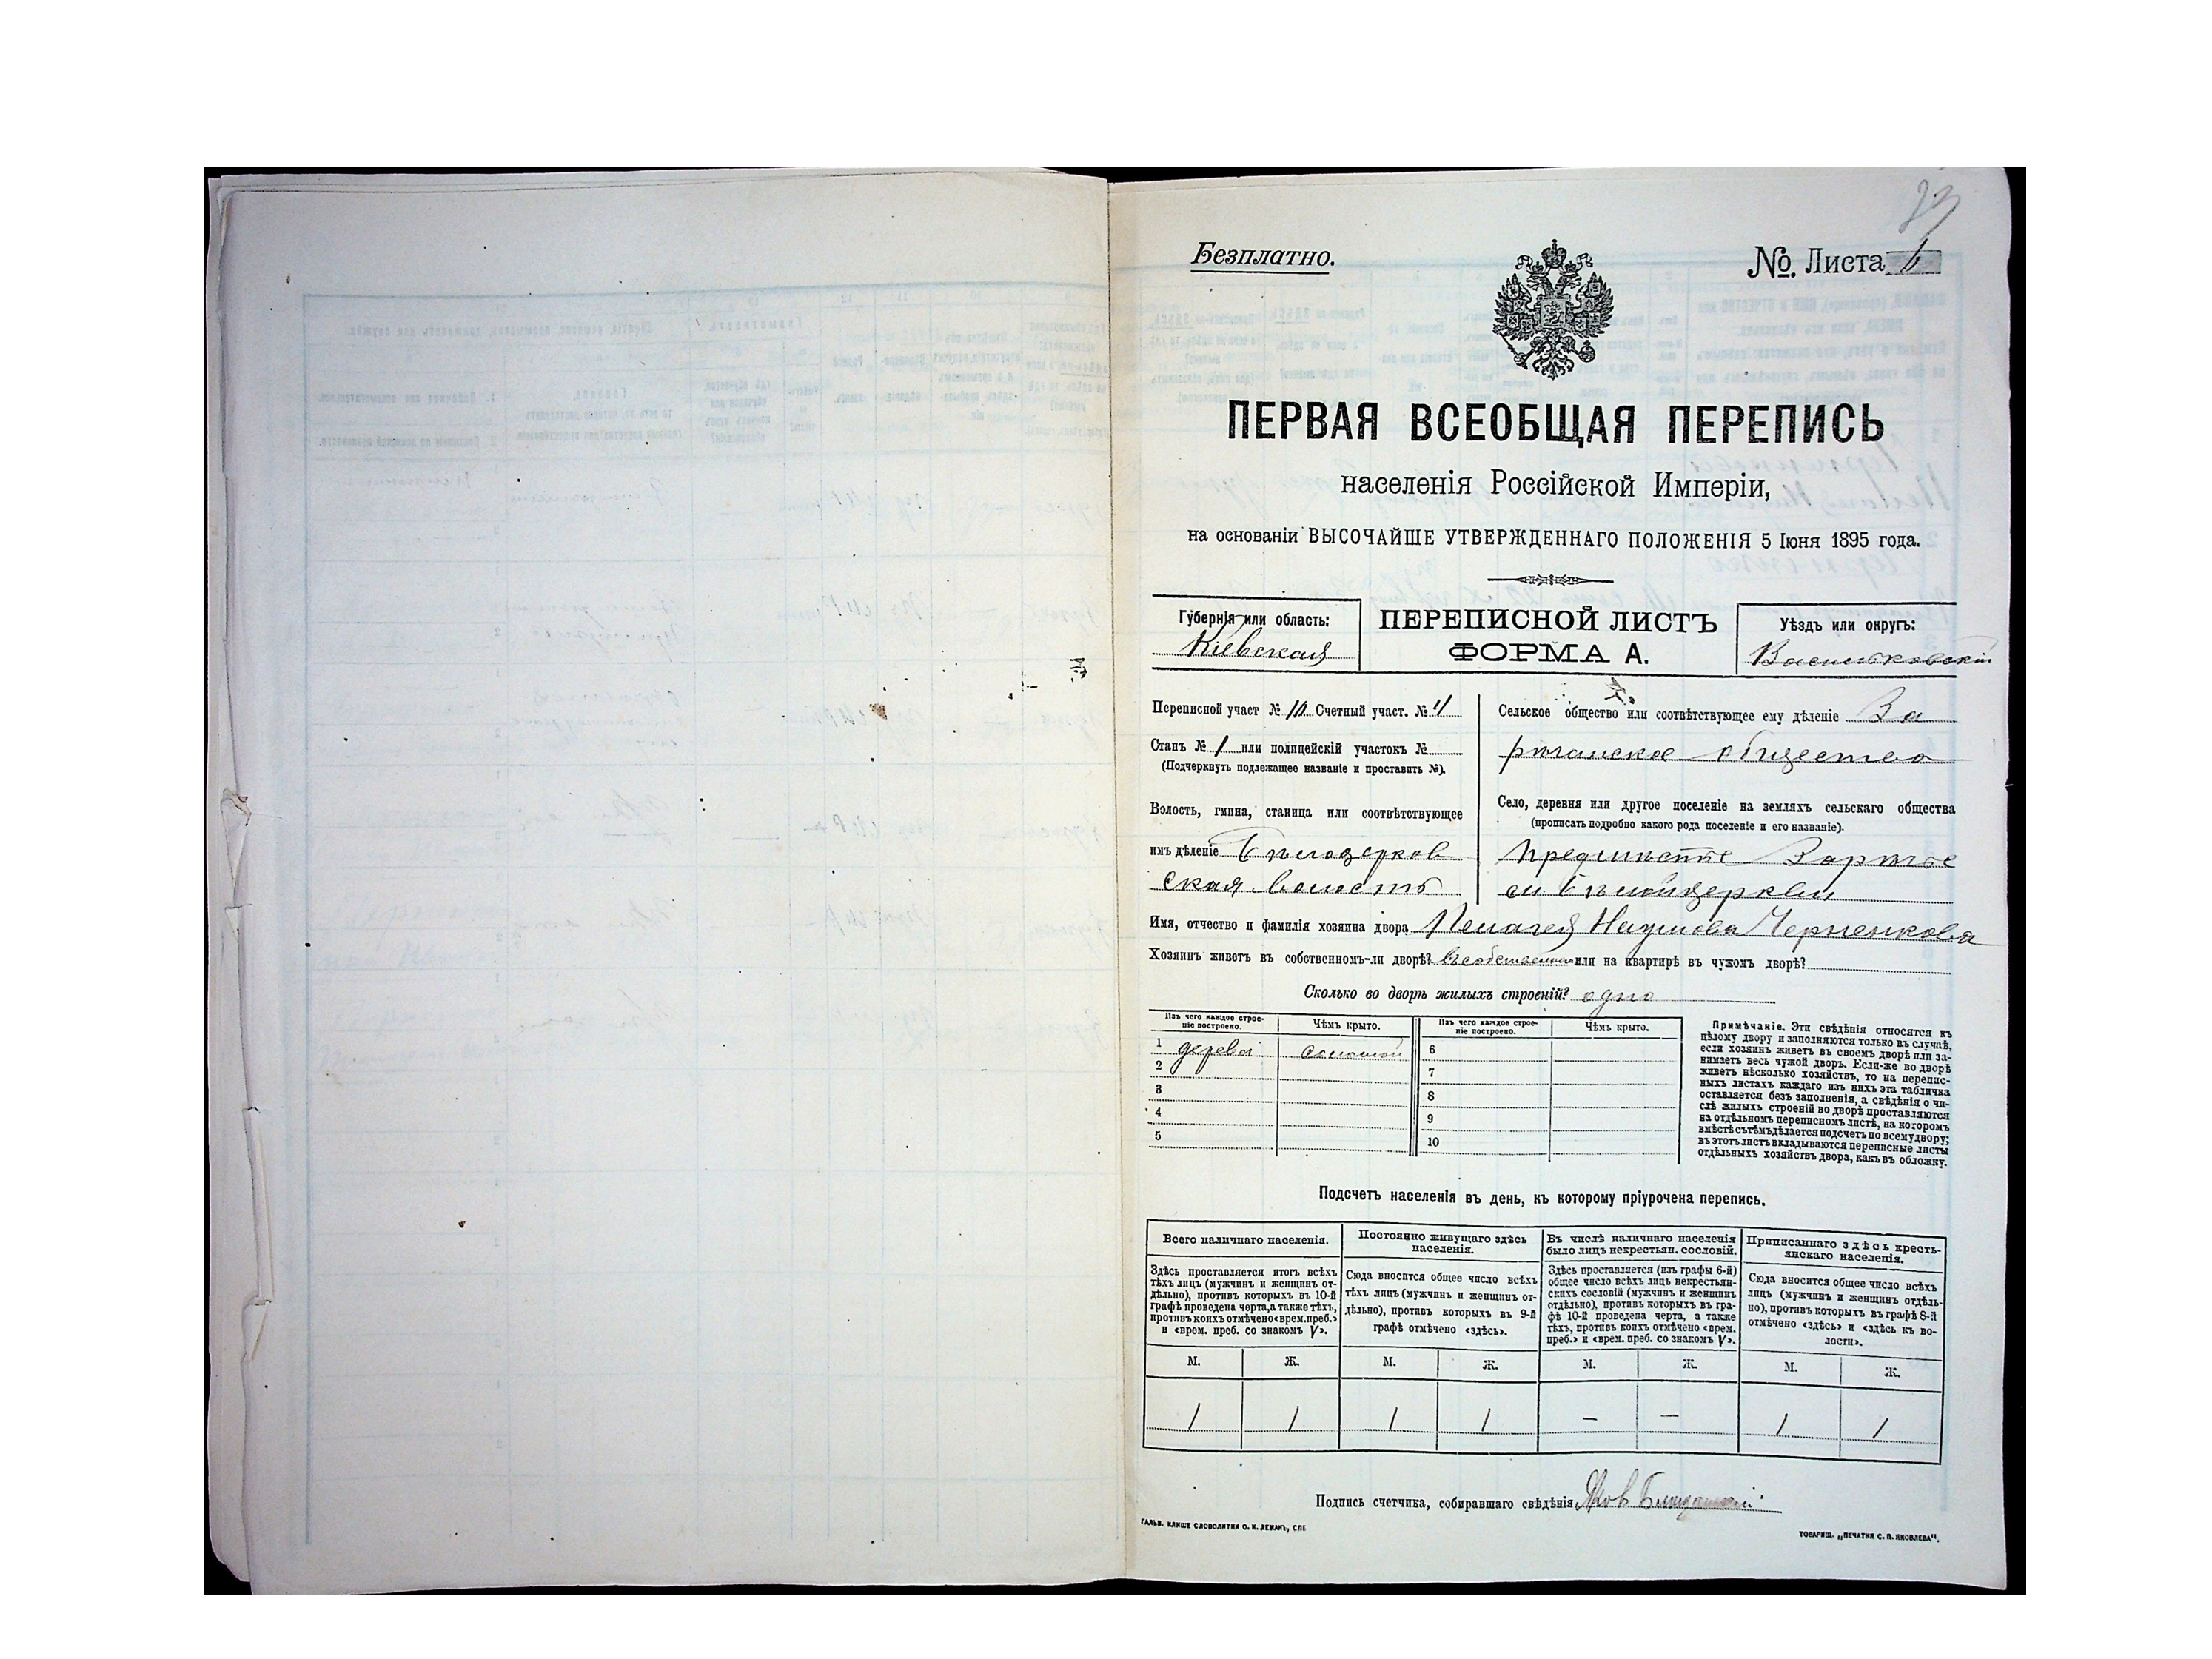 Безплатно.
№. Листа 6
ПЕРВАЯ ВСЕОБЩАЯ ПЕРЕПИСЬ
населенія Россійской Имперіи,
на основаніи ВЫСОЧАЙШЕ УТВЕРЖДЕННАГО ПОЛОЖЕНІЯ 5 Іюня 1895 года.
Губернія или область:
Кіевская
ПЕРЕПИСНОЙ ЛИСТЪ
ФОРМА А.
Уѣздъ или округъ:
Васильковскій
Переписной участ № 10 Счетный участ. № 4
Станъ № 1 или полицейскій участокъ №
(Подчеркнуть подлежащее названіе и проставить №).
Волость, гмина, станица или соотвѣтствующее
имъ дѣленіе Бѣлоцерков
ская волость
Сельское общество или соотвѣтствующее ему дѣленіе За
рѣчанское общество
Село, деревня или другое поселеніе на земляхъ сельскаго общества
(прописать подробно какого рода поселеніе и его названіе).
предмѣстье Зарѣчье
м. Бѣлой церкви
Имя, отчество и фамилія хозяина двора Пелагея Наумова Черненкова
Хозяинъ живетъ въ собственномъ-ли дворѣ? въ собственномъ или на квартирѣ въ чужомъ дворѣ?
Сколько во дворѣ жилыхъ строеній? одно
Изъ чего каждое строе-
ніе построено.
Чѣмъ крыто.
Изъ чего каждое строе-
ніе построено.
Чѣмъ крыто.
1 дерева соломой
2
3
4
5
6
7
8
9
10
Примѣчаніе. Эти свѣдѣнія относятся къ
цѣлому двору и заполняются только въ случаѣ,
если хозяинъ живетъ въ своемъ дворѣ или за-
нимаетъ весь чужой дворъ. Если-же во дворѣ
живетъ нѣсколько хозяйствъ, то на перепис-
ныхъ листахъ каждаго изъ нихъ эта табличка
оставляется безъ заполненія, а свѣдѣнія о чи-
слѣ жилыхъ строеній во дворѣ проставляются
на отдѣльномъ переписномъ листѣ, на которомъ
вмѣстѣ съ тѣмъ дѣлается подсчетъ по всему двору;
въ этотъ листъ вкладываются переписные листы
отдѣльныхъ хозяйствъ двора, какъ въ обложку.
Подсчетъ населенія въ день, къ которому пріурочена перепись.
Всего наличнаго населенія.
Здѣсь проставляется итогъ всѣхъ
тѣхъ лицъ (мужчинъ и женщинъ от-
дѣльно), противъ которыхъ въ 10-й
графѣ проведена черта, а также тѣхъ,
противъ коихъ отмѣчено «врем. преб.»
и «врем. преб. со знакомъ V».
Постоянно живущаго здѣсь
населенія.
Сюда вносится общее число всѣхъ
тѣхъ лицъ (мужчинъ и женщинъ от-
дѣльно), противъ которыхъ въ 9-й
графѣ отмѣчено «здѣсь».
Въ числѣ наличнаго населенія
было лицъ некрестьян. сословій.
Здѣсь проставляется (изъ графы 6-й)
общее число всѣхъ лицъ некрестьян-
скихъ сословій (мужчинъ и женщинъ
отдѣльно), противъ которыхъ въ гра-
фѣ 10-й проведена черта, а также
тѣхъ, противъ коихъ отмѣчено «врем.
преб.» и «врем. преб. со знакомъ V».
Приписаннаго здѣсь кресть-
янскаго населенія.
Сюда вносится общее число всѣхъ
лицъ (мужчинъ и женщинъ отдѣль-
но), противъ которыхъ въ графѣ 8-й
отмѣчено «здѣсь» и «здѣсь къ во-
лости».
М. Ж. М. Ж. М. Ж. М. Ж.
1 1 1 1 — — 1 1
Подпись счетчика, собиравшаго свѣдѣнія
ГАЛЬВ. КЛИШЕ СЛОВОЛИТНИ О. И. ЛЕМАНЪ, СПБ
ТОВАРИЩ. „ПЕЧАТНЯ С. П. ЯКОВЛЕВА“.